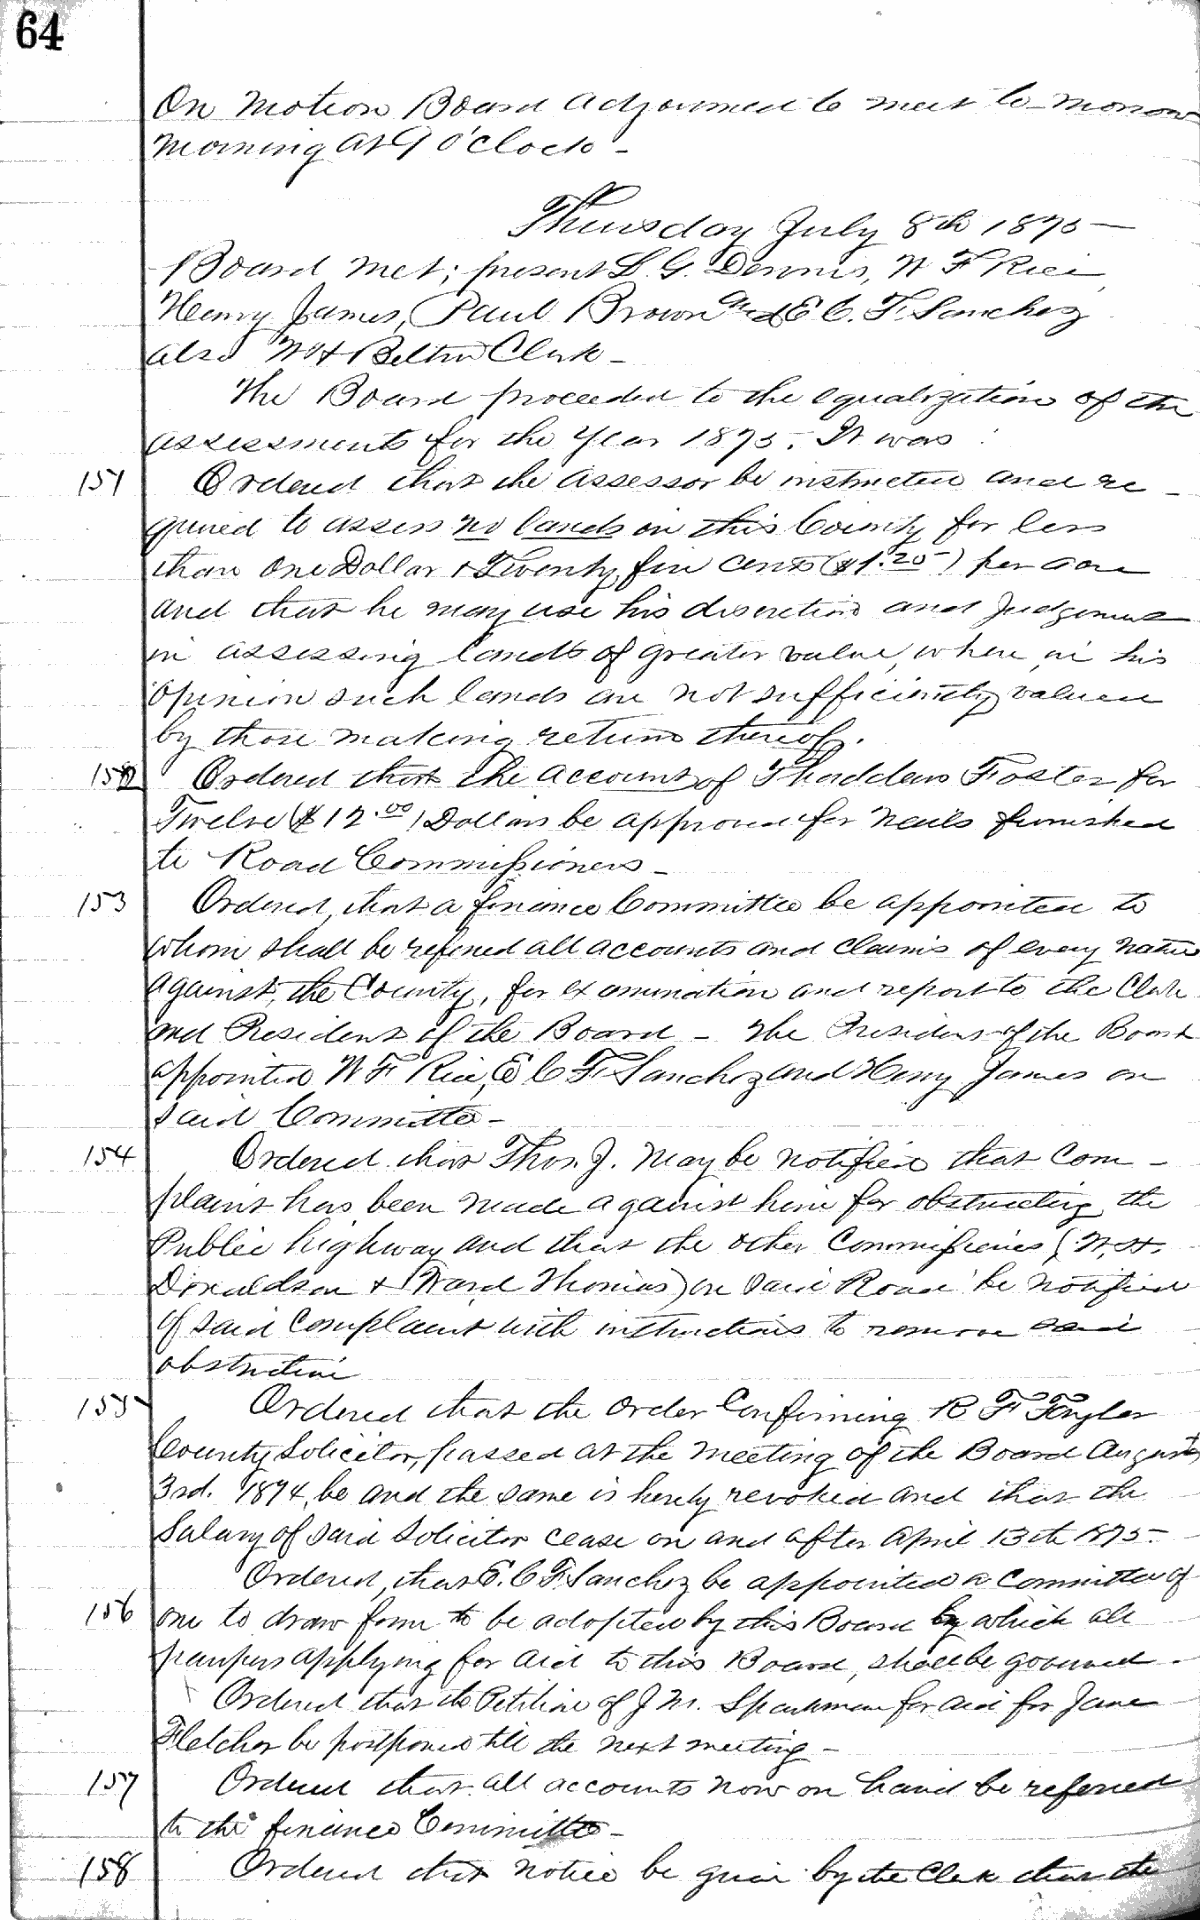 64
On motion Board adjourned to meet to-morrow
morning at 9 o'clock -
Thursday July 8th 1875 -
Board met; present L. G. Dennis, W F Rice,
Henry James, Paul Brown and E. C. F. Sanchez
also W H Belton Clerk -
The Board proceeded to the equalization of the
assessments for the Year 1875. It was:
151 Ordered that the assessor be instructed and re-
quired to assess no lands in this County for less
than One Dollar & Twenty five cents ($1.25) per acre
and that he may use his discretion and Judgement
in assessing lands of greater value, where in his
opinion such lands are not sufficiently valued
by those making return thereof.
152 Ordered that the account of Thaddeus Foster for
Twelve ($12.00) Dollars be approved for nails furnished
to Road Commissioners -
153 Ordered, that a finance Committee be appointed to
whom shall be referred all accounts and claims of every nature
against, the County, for examination and report to the Clerk
and President of the Board - The President of the Board
appointed W F Rice, E C F Sanchez and Henry James on
said Committee -
154 Ordered that Thos. J. May be notified that com-
plaint has been made against him for obstructing the
Public highway and that the other Commissioners (W. H.
Donaldson & Ward Thomas) on said Road be notified
of said complaint with instructions to remove said
obstruction
155 Ordered that the order Confirming R F Taylor
County Solicitor, passed at the meeting of the Board August
3rd. 1874, be and the same is hereby revoked and that the
Salary of said Solicitor cease on and after April 13th 1875 -
Ordered, that E. C F. Sanchez be appointed a committee of
156 one to draw form to be adopted by this Board by which all
paupers applying for aid to this Board, shall be governed -
Ordered that the Petition of J M. Sparkman for aid for Jane
Fletcher be postponed till the next meeting -
157 Ordered that all accounts now on hand be referred
to the finance Committee -
158 Ordered that notice be given by the Clerk that the